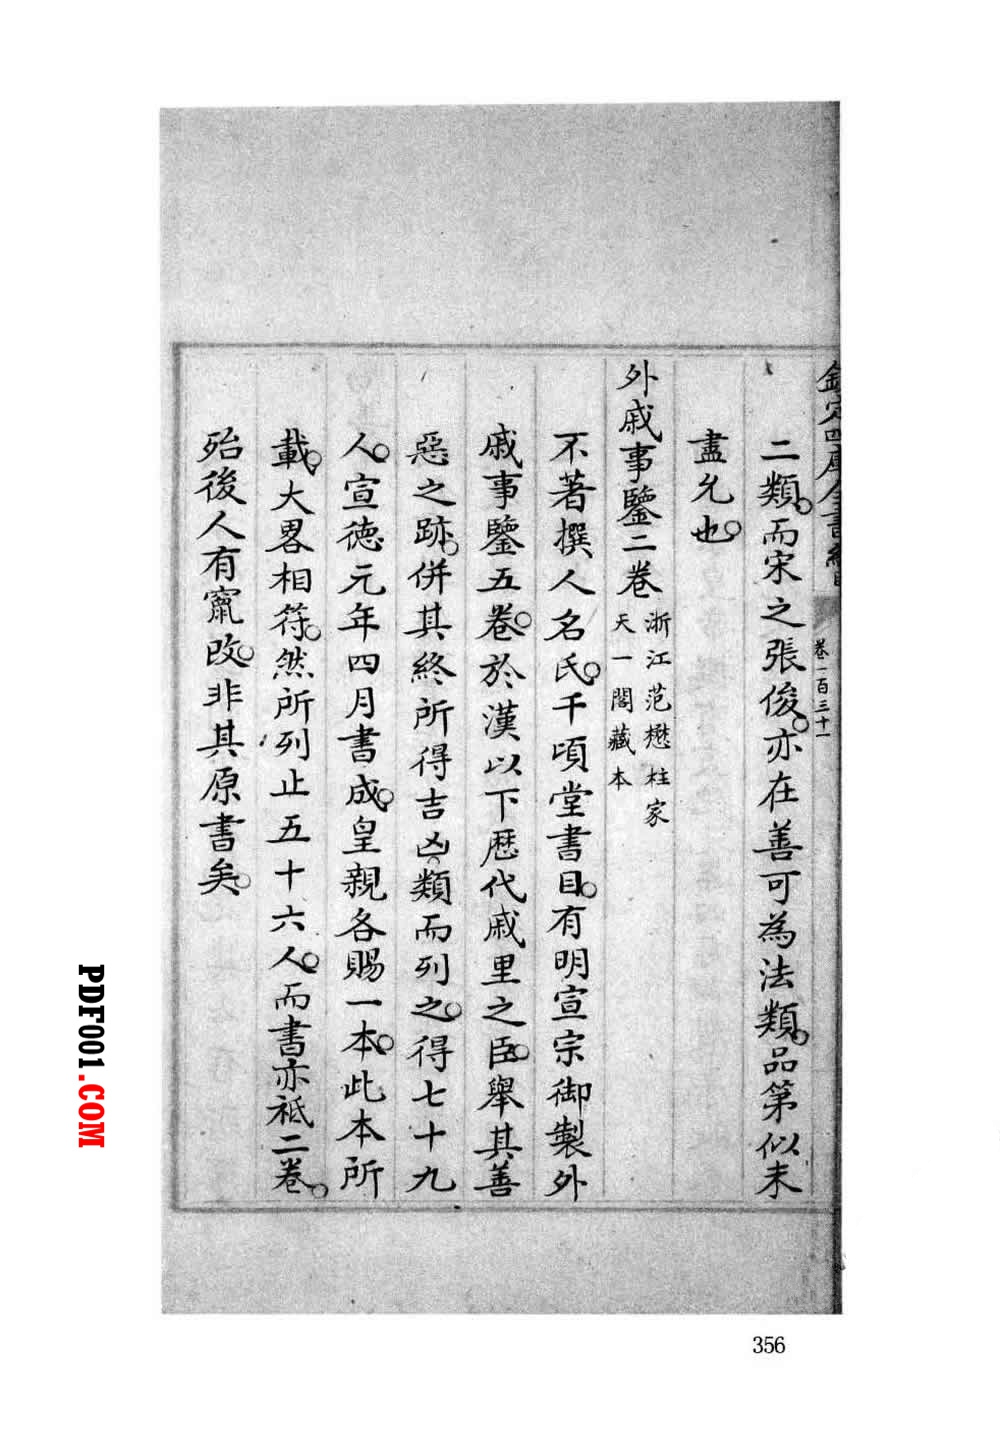 二類。而宋之張俊。亦在善可為法類。品第似未
盡允也。
外戚事鑒二卷
浙江范懋柱家
天一閣藏本
不著撰人名氏。千頃堂書目。有明宣宗御製外
戚事鑒五卷。於漢以下歷代戚里之臣。舉其善
惡之跡。併其終所得吉凶。類而列之。得七十九
人。宣德元年四月書成。皇親各賜一本。此本所
載。大畧相符。然所列止五十六人。而書亦祗二卷。
殆後人有竄改。非其原書矣。
卷一百三十一
PDF001.COM
356